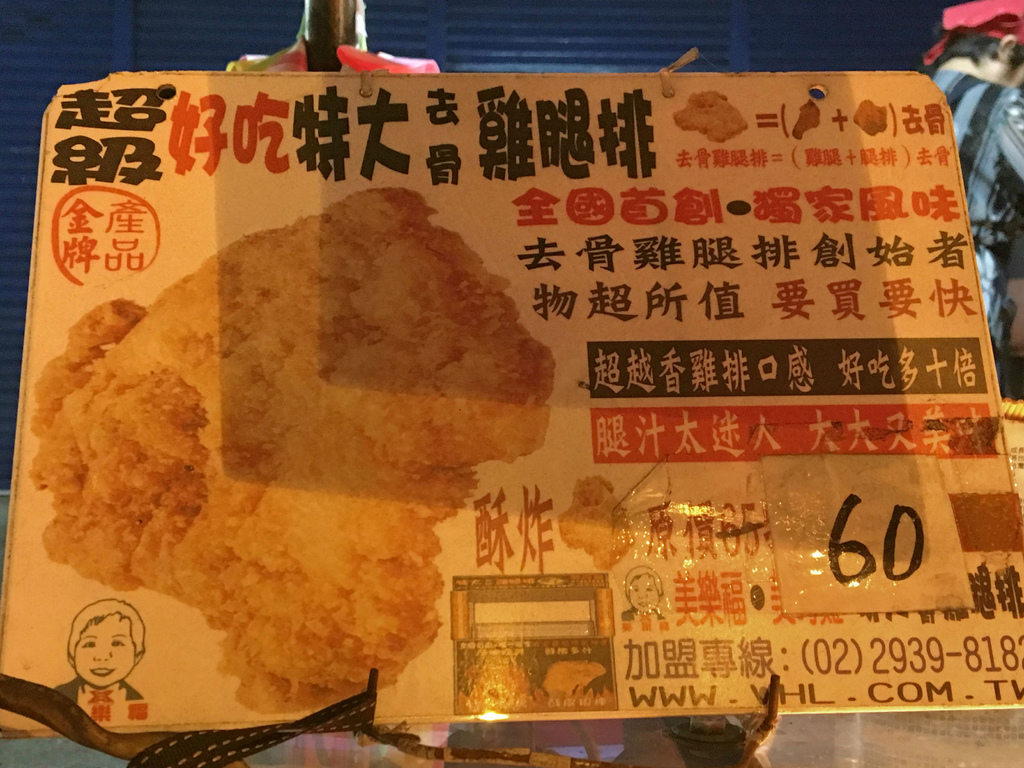 超級好吃特大去骨雞腿排
=( + )去骨
去骨雞腿排=(雞腿+腿排)去骨
金牌產品
全國首創•獨家風味
去骨雞腿排創始者
物超所值 要買要快
超越香雞排口感 好吃多十倍
腿汁太迷人 大大又美味
酥炸
原價65
60
美樂福•
雞腿排
加盟專線:(02)2939-8182
WWW.VHL.COM.TW
美樂福